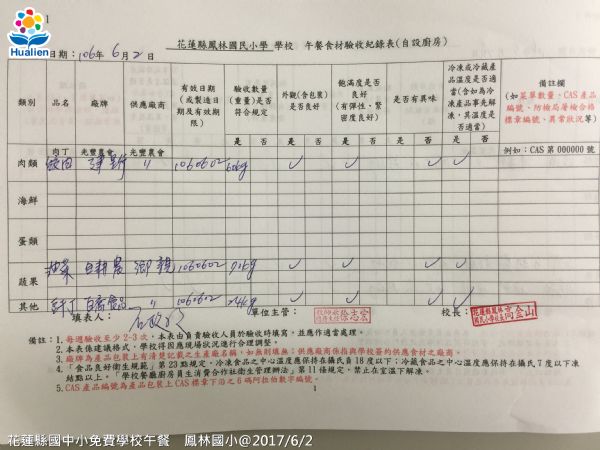 1
Hualien
花蓮縣鳳林國民小學 學校 午餐食材驗收紀錄表(自設廚房)
日期：106年6月2日
類別 品名 廠牌 供應廠商 有效日期(或製造日期及有效期限) 驗收數量(重量)是否符合規定 外觀(含包裝)是否良好 飽滿度是否良好(有彈性、緊密度良好) 是否有異味 冷凍或冷藏產品溫度是否適當(含如為冷凍產品事先解凍，其溫度是否適當) 備註欄(如菜單數量、CAS產品編號、防檢局屠檢合格標章編號、異常狀況等)
是 否 是 否 是 否 是 否 是 否 例如：CAS 第 000000 號
肉類 肉丁 光豐農會 光豐農會
絞肉 〃 1060602 ✓ ✓ ✓ ✓
海鮮
蛋類
蔬果 油菜 1060602 ✓ ✓ ✓
其他 〃 1060602 ✓ ✓ ✓ ✓
填表人： 單位主管： 校長：
備註：1.每週驗收至少2-3次，本表由負責驗收人員於驗收時填寫，並應作適當處理。
2.本表係建議格式，學校得因應現場狀況進行合理調整。
3.廠牌為產品包裝上有清楚記載之生產廠名稱，如無則填無；供應廠商係指與學校簽約供應食材之廠商。
4.「食品良好衛生規範」第23點規定，冷凍食品之中心溫度應保持在攝氏負18度以下；冷藏食品之中心溫度應保持在攝氏7度以下凍結點以上。「學校餐廳廚房員生消費合作社衛生管理辦法」第11條規定，禁止在室溫下解凍。
5.CAS產品編號為產品包裝上CAS標章下沿之6碼阿拉伯數字編號。
1
花蓮縣國中小免費學校午餐 鳳林國小@2017/6/2